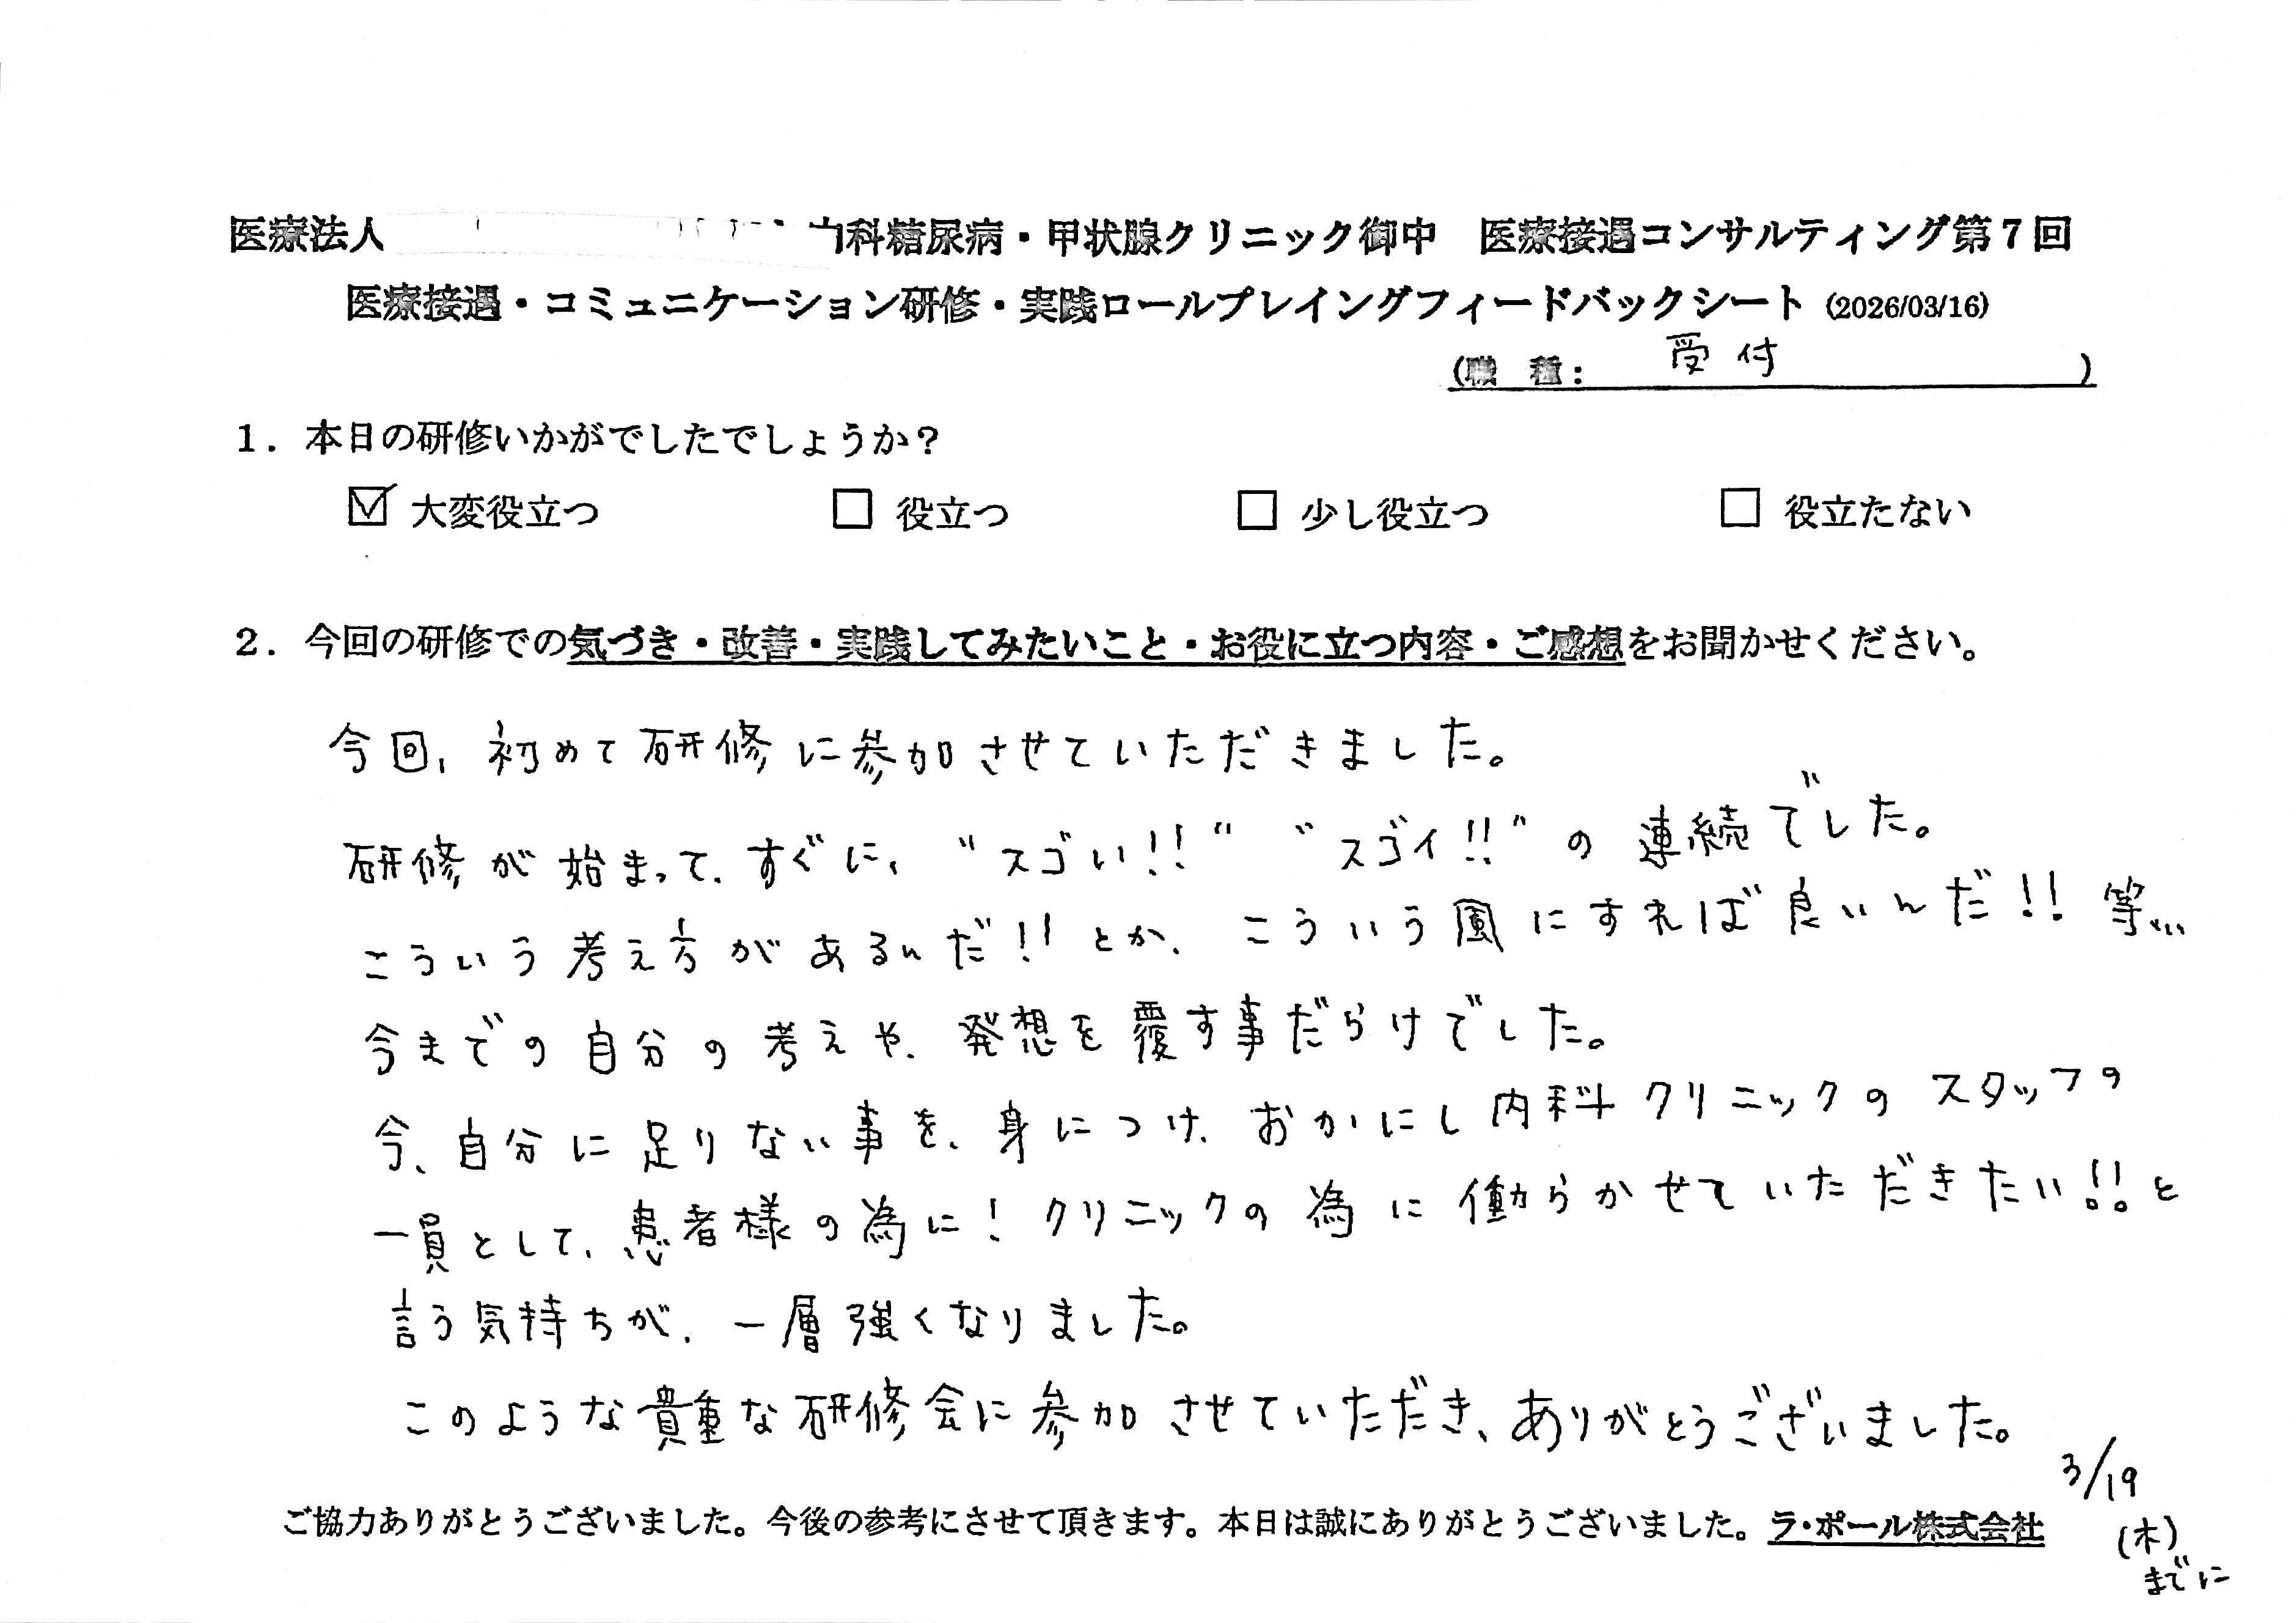 医療法人 内科糖尿病・甲状腺クリニック御中　医療接遇コンサルティング第７回
医療接遇・コミュニケーション研修・実践ロールプレイングフィードバックシート（2026/03/16）
（職　種：　受付　）
１．本日の研修いかがでしたでしょうか？
☑ 大変役立つ　□ 役立つ　□ 少し役立つ　□ 役立たない
２．今回の研修での気づき・改善・実践してみたいこと・お役に立つ内容・ご感想をお聞かせください。
今回、初めて研修に参加させていただきました。
研修が始まって、すぐに、“スゴい!!”“スゴイ!!”の連続でした。
こういう考え方があるんだ!!とか、こういう風にすれば良いんだ!!等…
今までの自分の考えや、発想を覆す事だらけでした。
今、自分に足りない事を、身につけ、おかにし内科クリニックのスタッフの
一員として、患者様の為に！クリニックの為に働らかせていただきたい!!と
言う気持ちが、一層強くなりました。
このような貴重な研修会に参加させていただき、ありがとうございました。
ご協力ありがとうございました。今後の参考にさせて頂きます。本日は誠にありがとうございました。ラ・ポール株式会社
3/19
(木)
までに